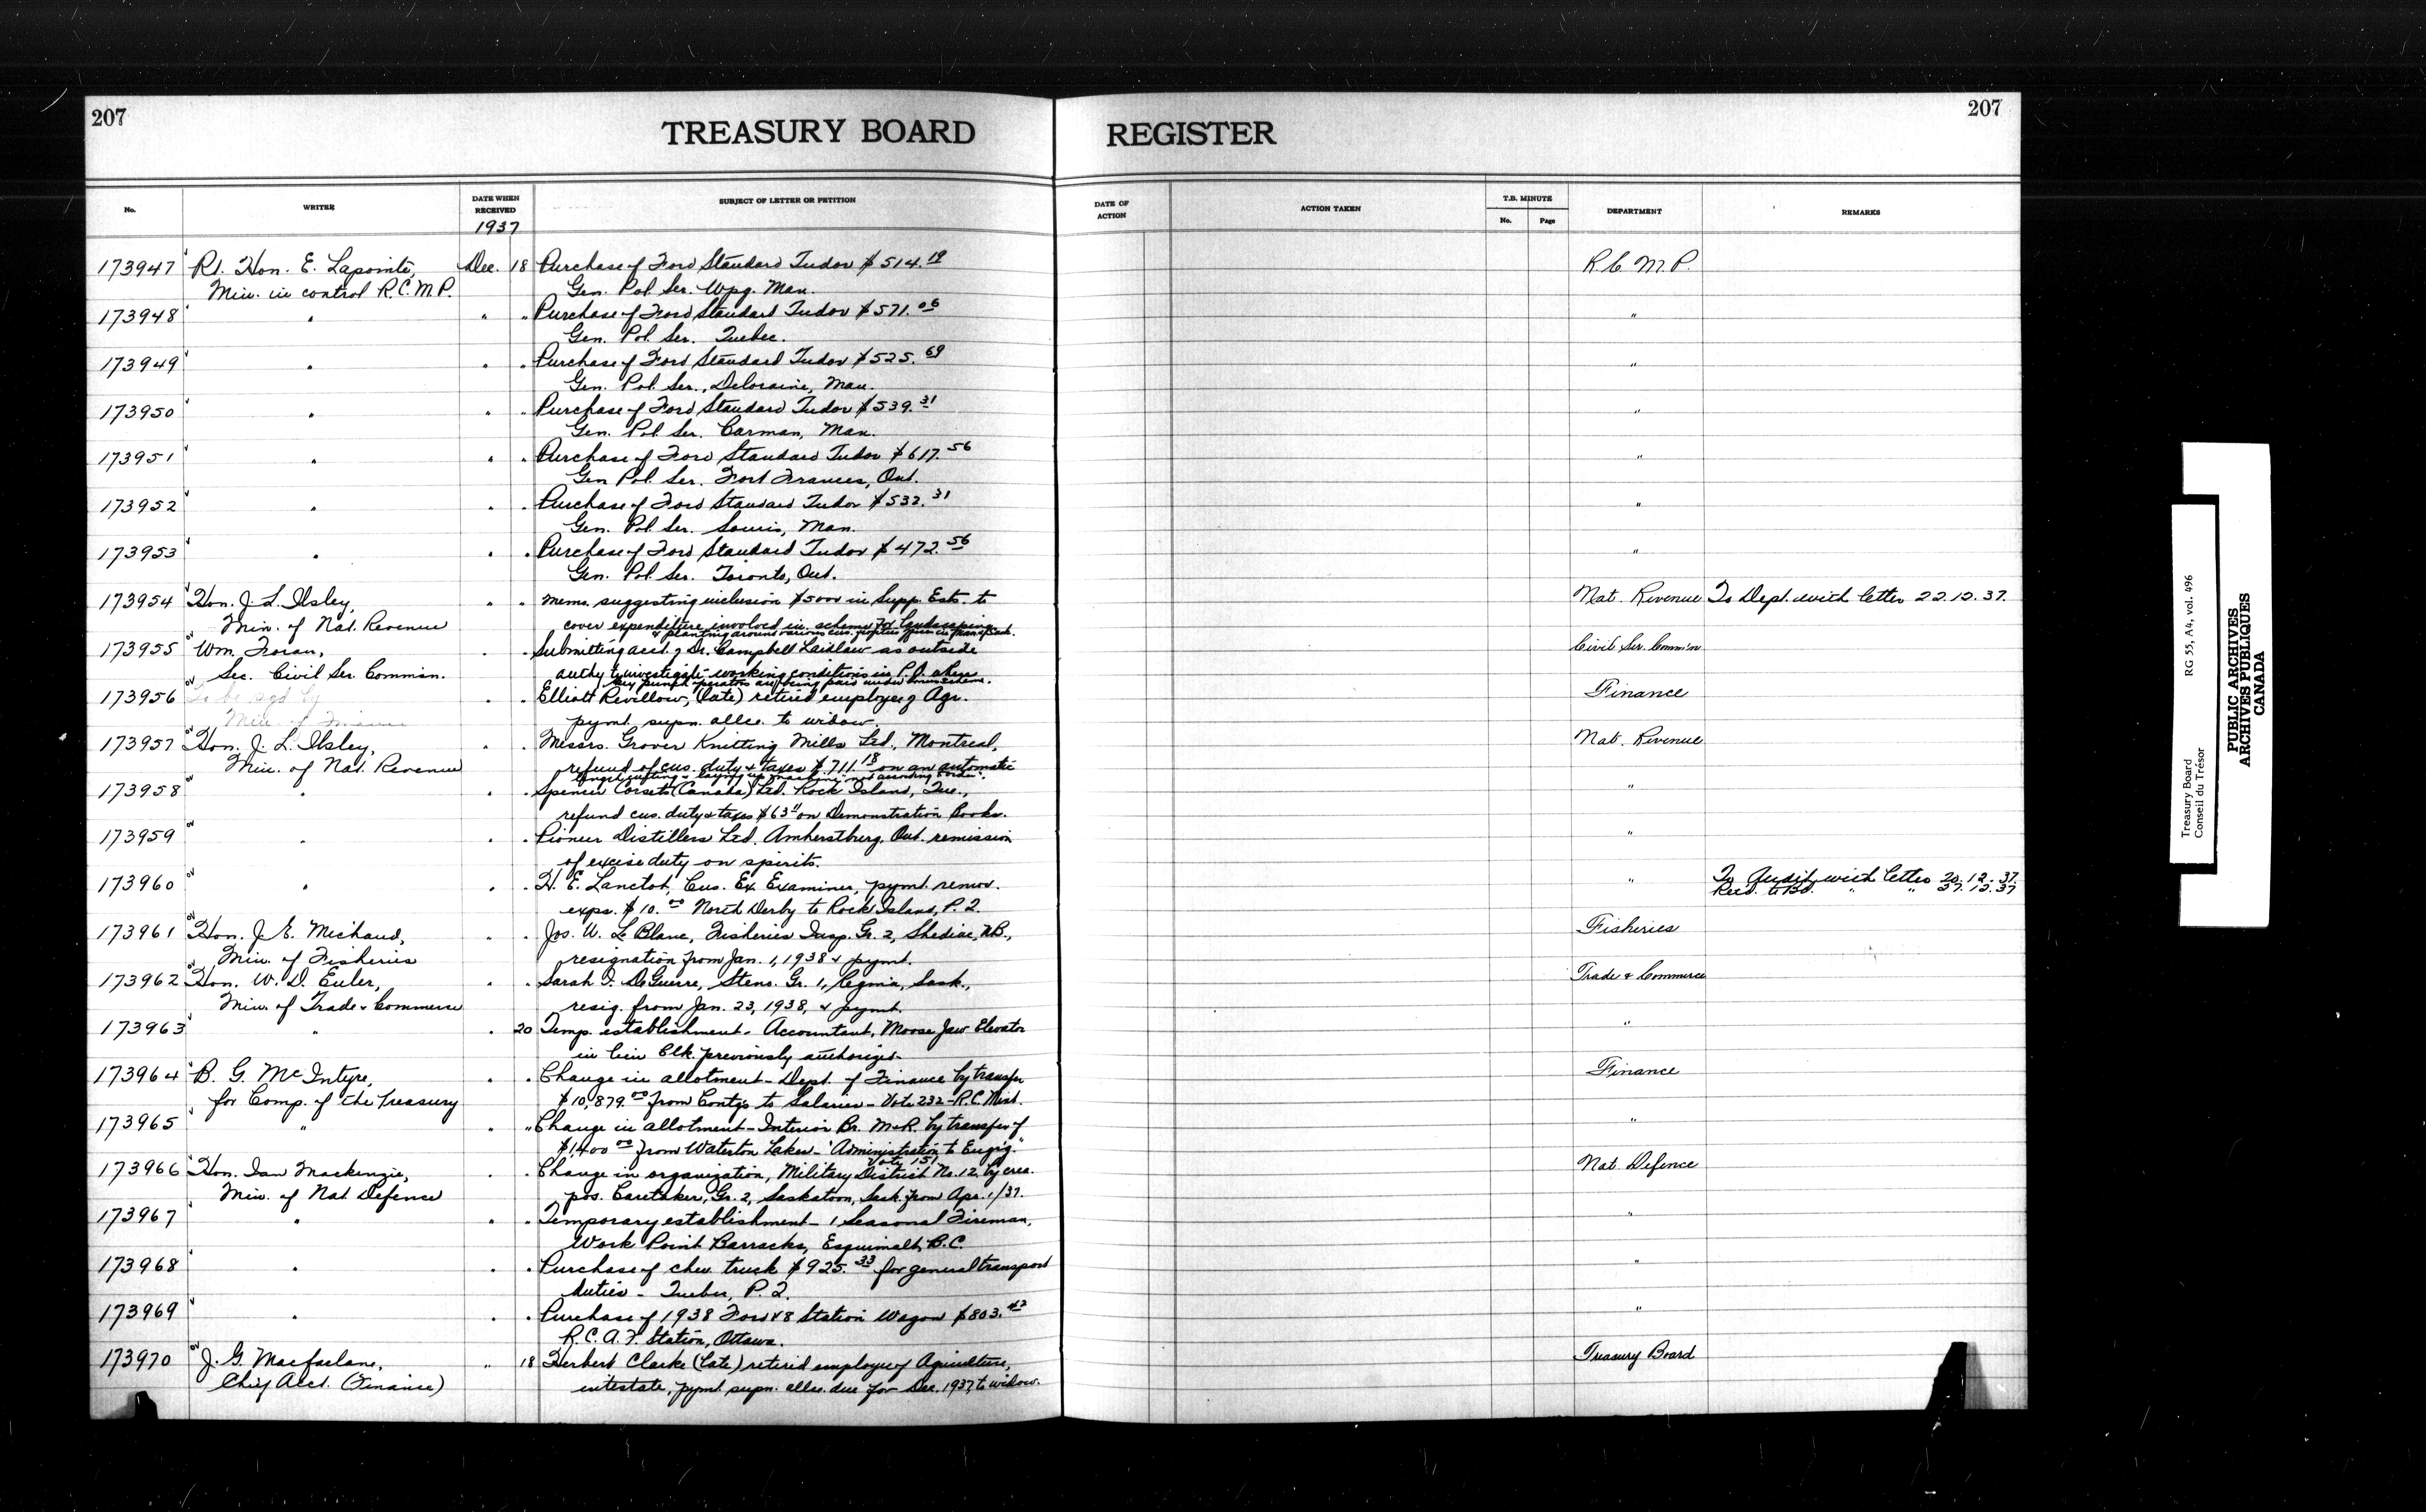 207
TREASURY BOARD REGISTER
207
No. WRITER DATE WHEN RECEIVED SUBJECT OF LETTER OR PETITION DATE OF ACTION ACTION TAKEN T.B. MINUTE No. Page DEPARTMENT REMARKS
1937
173947 Rt. Hon. E. Lapointe, Dec. 18 Purchase of Ford Standard Tudor $514.19 R.C.M.P.
Min. in control R.C.M.P. Gen. Pol. Ser. Wpg. Man.
173948 " " " Purchase of Ford Standard Tudor $571.06 "
Gen. Pol. Ser. Quebec.
173949 " " " Purchase of Ford Standard Tudor $525.69 "
Gen. Pol. Ser., Deloraine, Man.
173950 " " " Purchase of Ford Standard Tudor $539.31 "
Gen. Pol. Ser. Carman, Man.
173951 " " " Purchase of Ford Standard Tudor $617.56 "
Gen Pol. Ser. Fort Frances, Ont.
173952 " " " Purchase of Ford Standard Tudor $532.31 "
Gen. Pol. Ser. Souris, Man.
173953 " " " Purchase of Ford Standard Tudor $472.56 "
Gen. Pol. Ser. Toronto, Ont.
173954 Hon. J. L. Ilsley, " " Memo. suggesting inclusion $5000 in Supp. Ests. to Nat. Revenue To Dept. with letter 22.12.37.
Min. of Nat. Revenue cover expenditure involved in scheme for landscaping
& planting around various cus.
173955 Wm. Foran, " " Submitting acct. of Dr. Campbell Laidlaw as outside Civil Ser. Comm'n
Sec. Civil Ser. Commin. authy to investigate working conditions in P.O. where
key punch operators are being paid under bonus scheme.
173956 To be sgd by " " Elliott Revillow, (late) retired employee of Agr. Finance
Min. of Finance pymt. supn. allce. to widow.
173957 Hon. J. L. Ilsley, " " Messrs. Grover Knitting Mills Ltd., Montreal, Nat. Revenue
Min. of Nat. Revenue refund of cus. duty & taxes $711.18 on an automatic
length cutting & laying up machine
173958 " " " Spencer Corsets (Canada) Ltd. Rock Island, Que., "
refund cus. duty & taxes $63.11 on Demonstration Books.
173959 " " " Pioneer Distillers Ltd. Amherstburg, Ont. remission "
of excise duty on spirits.
173960 " " " H. E. Lanctot, Cus. Ex. Examiner, pymt. remov. " To Audit with letter 20.12.37.
exps. $10.00 North Derby to Rock Island, P.Q. Recd. to Bd. " "
173961 Hon. J. E. Michaud, " " Jos. W. Le Blanc, Fisheries Insp. Gr. 2, Shediac, N.B., Fisheries
Min. of Fisheries resignation from Jan. 1, 1938 & pymt.
173962 Hon. W. D. Euler, " " Sarah I. DeGuerre, Steno. Gr. 1, Regina, Sask., Trade & Commerce
Min. of Trade & Commerce resig. from Jan. 23, 1938, & pymt.
173963 " " 20 Temp. establishment - Accountant, Moose Jaw Elevator "
in lieu Clk. previously authorized.
173964 B. G. McIntyre, " " Change in allotment - Dept. of Finance by transfer Finance
for Comp. of the Treasury $10,879.00 from Contgs to Salaries - Vote 232 - R.C. Mint.
173965 " " Change in allotment - Interior Br. M & R. by transfer of "
$1,400.00 from Waterton Lakes - "Administration to Engrg."
Vote 151
173966 Hon. Ian Mackenzie, " " Change in organization, Military District No. 12, by crea. Nat. Defence
Min. of Nat. Defence pos. Caretaker, Gr. 2, Saskatoon, Sask. from Apr. 1/37.
173967 " " " Temporary establishment - 1 Seasonal Fireman, "
Work Point Barracks, Esquimalt, B.C.
173968 " " " Purchase of Chev. truck $925.33 for general transport "
duties - Quebec, P.Q.
173969 " " " Purchase of 1938 Ford V8 Station Wagon $803.43 "
R.C.A.F. Station, Ottawa.
173970 J. G. Macfarlane, " 18 Herbert Clarke (late) retired employee of Agriculture, Treasury Board
Chief Acct. (Finance) intestate, pymt. supn. allce. due for Dec. 1937, to widow.
Treasury Board RG 55, A4, vol. 496
Conseil du Trésor
PUBLIC ARCHIVES
ARCHIVES PUBLIQUES
CANADA